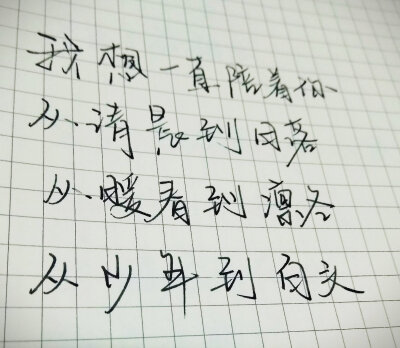 我想一直陪着你
从清晨到日落
从暖春到凛冬
从少年到白头